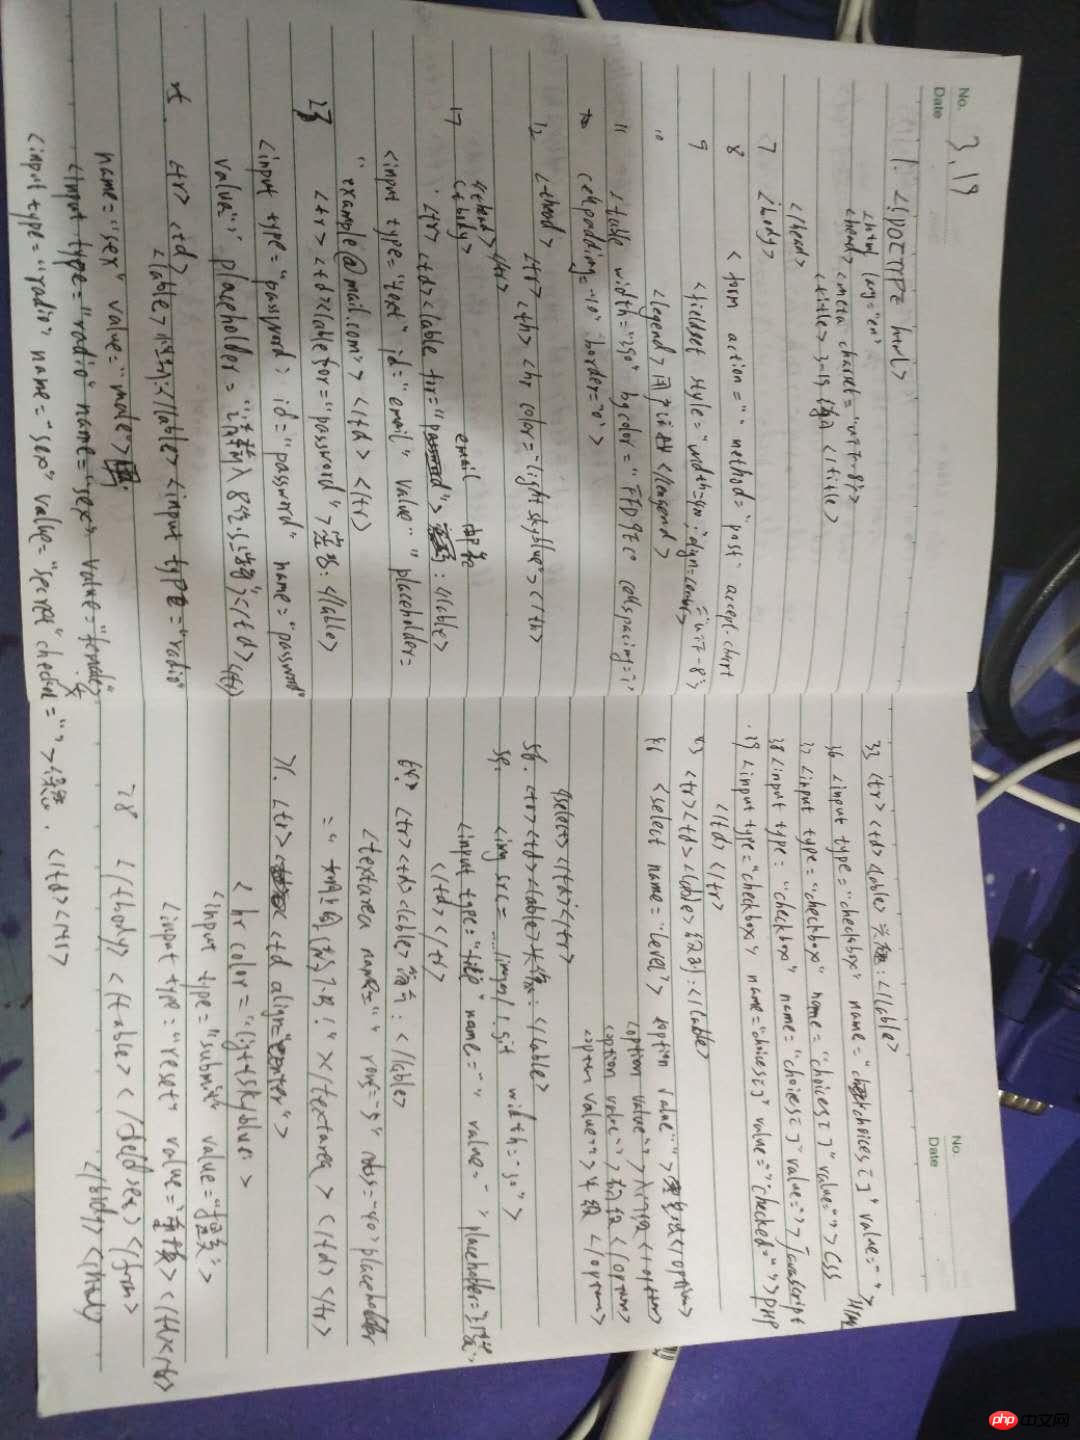 No.
Date
3.19
1. <!DOCTYPE html>
<html lang="en"
<head><meta charset="utf-8">
<title>3-19 </title>
</head>
7 <body>
8 <form action="" method="post" accept-chart
="utf-8">
9 <fieldset style="width=;align=center>
10 <legend>用户注册</legend>
11 <table width="350" bgcolor="
cellspacing=
cellpadding="10" border="0">
12 <thead> <tr> <th> <hr color="lightskyblue"></th>
</tr>
</thead>
<tbody>
17 <tr> <td><lable for="
email 邮箱
:</lable>
<input type="text" id="email" value="" placeholder=
"example@mail.com"></td></tr>
23 <tr><td><lable for="password">密码:</lable>
<input type="password" id="password" name="password"
value="" placeholder="请输入8位</td></tr>
<tr> <td>
<lable>性别:</lable><input type="radio"
name="sex" value="male">男
<input type="radio" name="sex" value="female">
女
<input type="radio" name="sex" value="secret" checked="">保密. </td></tr>
No.
Date
33 <tr><td><lable> :</lable>
36 <input type="checkbox" name="choices[]" value="">
37 <input type="checkbox" name="choices[]" value="">CSS
38 <input type="checkbox" name="choices[]" value="">Javascript
39 <input type="checkbox" name="choices[]" value="checked="">PHP
</td></tr>
<tr><td><lable>级别:</lable>
<select name="level"> <option value="">
</option>
<option value="">入门级</option>
<option value="">初级</option>
<option value="">中级</option>
</select></td></tr>
56. <tr><td><lable>头像:</lable>
59. <img src= 1.gif width="30">
<input type=" name="" value="" placeholder=
</td></tr>
<tr><td><lable>简介:</lable>
<textarea name="" rows="5" placeholder
="</textarea></td></tr>
71. <tr> <td align="center">
<hr color="lightskyblue>
<input type="submit" value="提交">
<input type="reset" value="重填></td></tr>
78 </tbody></table></fieldset></form>
</body>
php 中文网